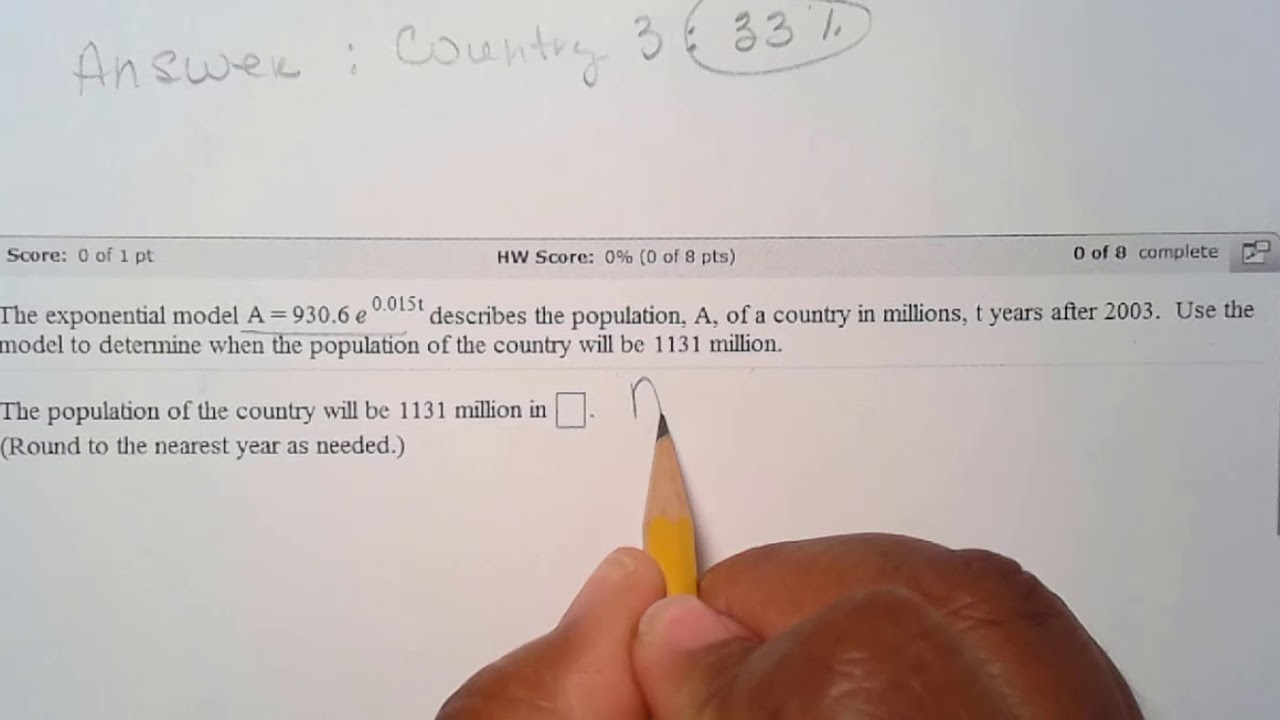 Answer : Country 3 : 33 %
Score: 0 of 1 pt HW Score: 0% (0 of 8 pts) 0 of 8 complete
The exponential model A = 930.6 e^0.015t describes the population, A, of a country in millions, t years after 2003. Use the
model to determine when the population of the country will be 1131 million.
The population of the country will be 1131 million in □. n
(Round to the nearest year as needed.)